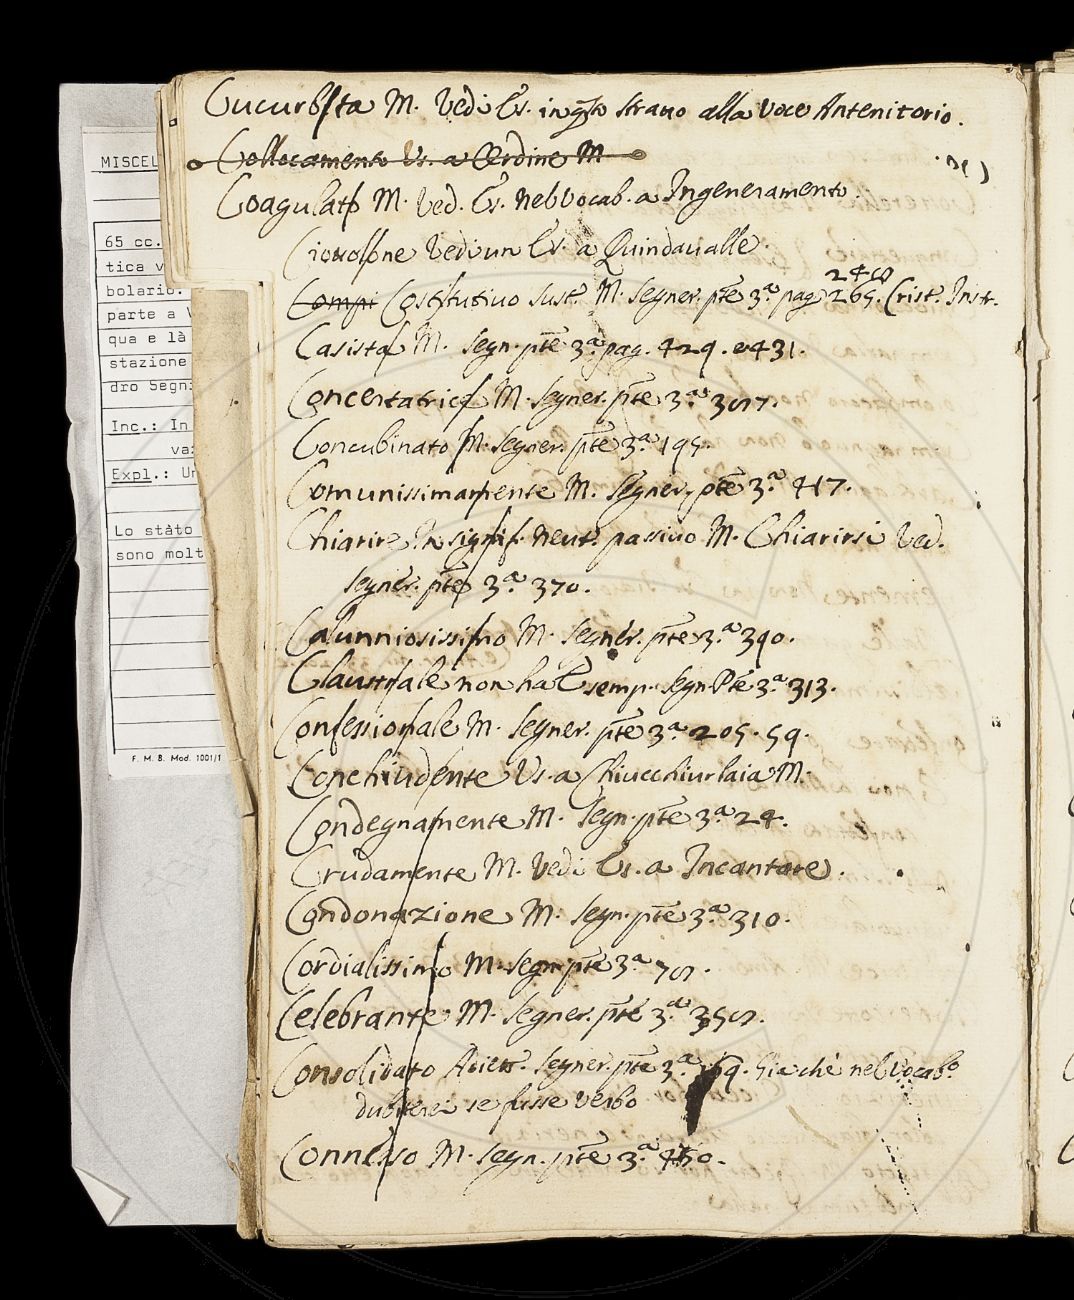 Cucurbita M. Vedi Es. in qsto straccio alla voce Antenitorio.
Collocamento Vs. a Cerdine M
Coagulato M. Ved. Es. nel Vocab. a Ingeneramento.
Vedi un Es. a Quindavalle.
Compi Costitutivo Sust. M. Segner. pte 3.a pag. 265. 248 Crist. Instr.
Casista M. Segn. pte 3.a pag. 429. e 431.
Concertatrice M. Segner. pte 3.a
Concubinato M. Segner. pte 3.a 195.
Comunissimamente M. Segner. pte 3.a 417.
Chiarire In signif. Neut. passivo M. Chiarirsi Ved.
Segner. pte 3.a 370.
Calunniosissimo M. Segner. pte 3.a 390.
Claustrale non ha Es semp. Segn. Pte 3.a 313.
Confessionale M. Segner. pte 3.a 205. 59.
Conchiudente Vs. a Chiucchiurlaia M.
Condegnamente M. Segn. pte 3.a 24.
Crudamente M. Vedi Es. a Incantare.
Condonazione M. Segn. pte 3.a 310.
Cordialissimo M. Segn. pte 3.a
Celebrante M. Segner. pte 3.a
Consolidato Adiett. Segner. pte 3.a 169. Giachè nel Vocabo
dubiterei se fusse verbo
Connesso M. Segn. pte 3.a
MISCEL
65 cc.
tica v
bolario.
parte a V
qua e là
stazione
dro Segni
Inc.: In
va
Expl.: Un
Lo stàto
sono molt
F. M. B. Mod. 1001/1